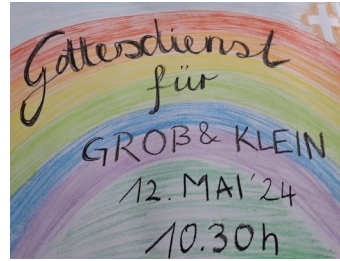 Gottesdienst
für
GROß & KLEIN
12. MAI '24
10.30h